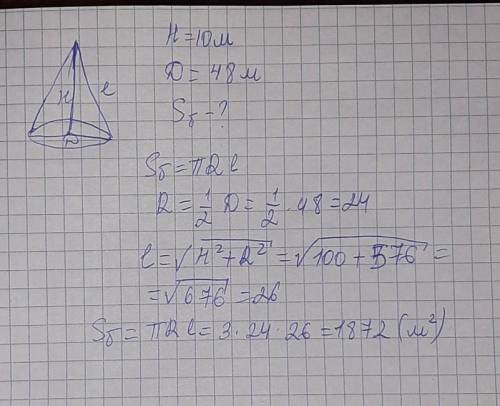 H = 10 м
D = 48 м
Sб - ?
H l
D
Sб = πRl
R = 1/2 D = 1/2 · 48 = 24
l = √(H² + R²) = √(100 + 576) =
= √676 = 26
Sб = πRl = 3 · 24 · 26 = 1872 (м²)